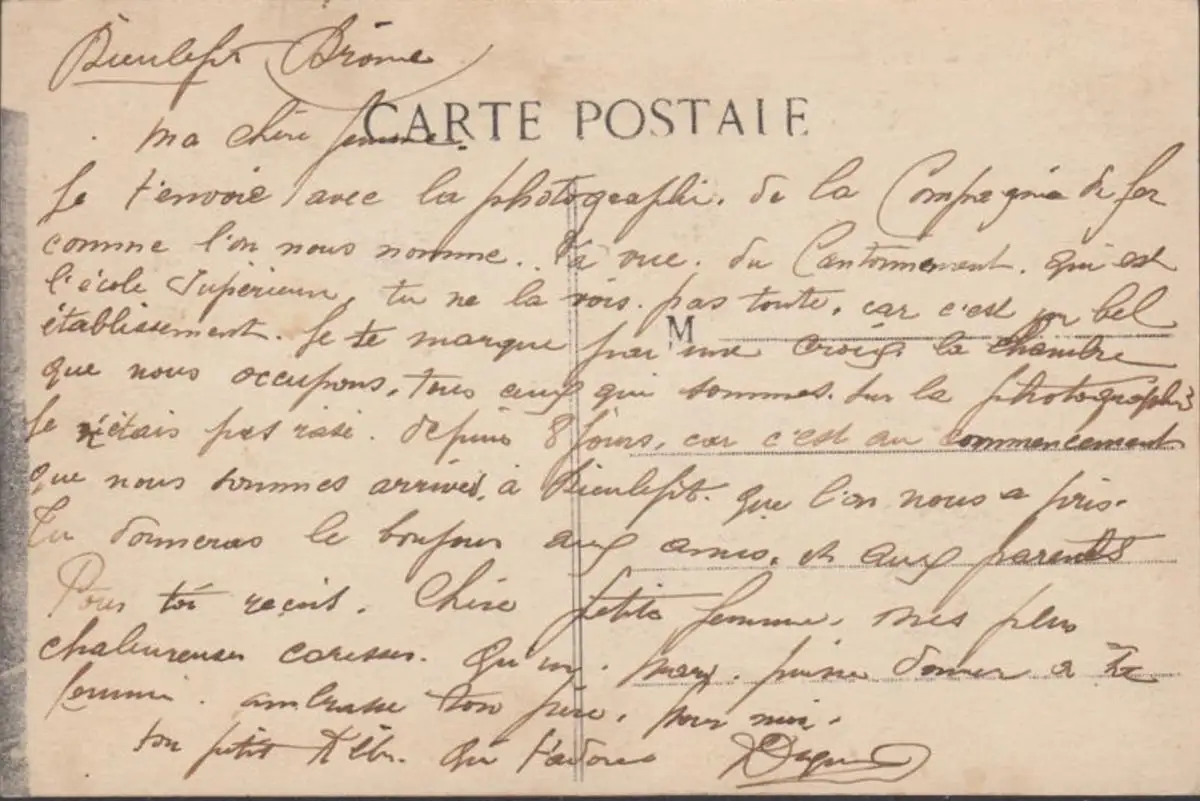 Dieulefit Drôme
CARTE POSTALE
Ma chère femme.
Je t'envoie avec la photographie. de la Compagnie de fer
comme l'on nous nomme. La vue. du Cantonnement. qui est
l'école Supérieur, tu ne la vois. pas toute, car c'est un bel
M
établissement. Je te marque par une croix la chambre
que nous occupons, tous ceux qui sommes. sur la photographie
Je n'étais pas rasé. depuis 8 jours, car c'est au commencement
que nous sommes arrivés, à Dieulefit. que l'on nous a pris.
Tu donneras le bonjour aux amis, et aux parents
Pour toi reçoit. Chère petite femme, mes plus
chaleureuses caresses. qu'un. mary. puisse donner a
femme. ambrasse ton père, pour moi.
ton petit qui t'adore